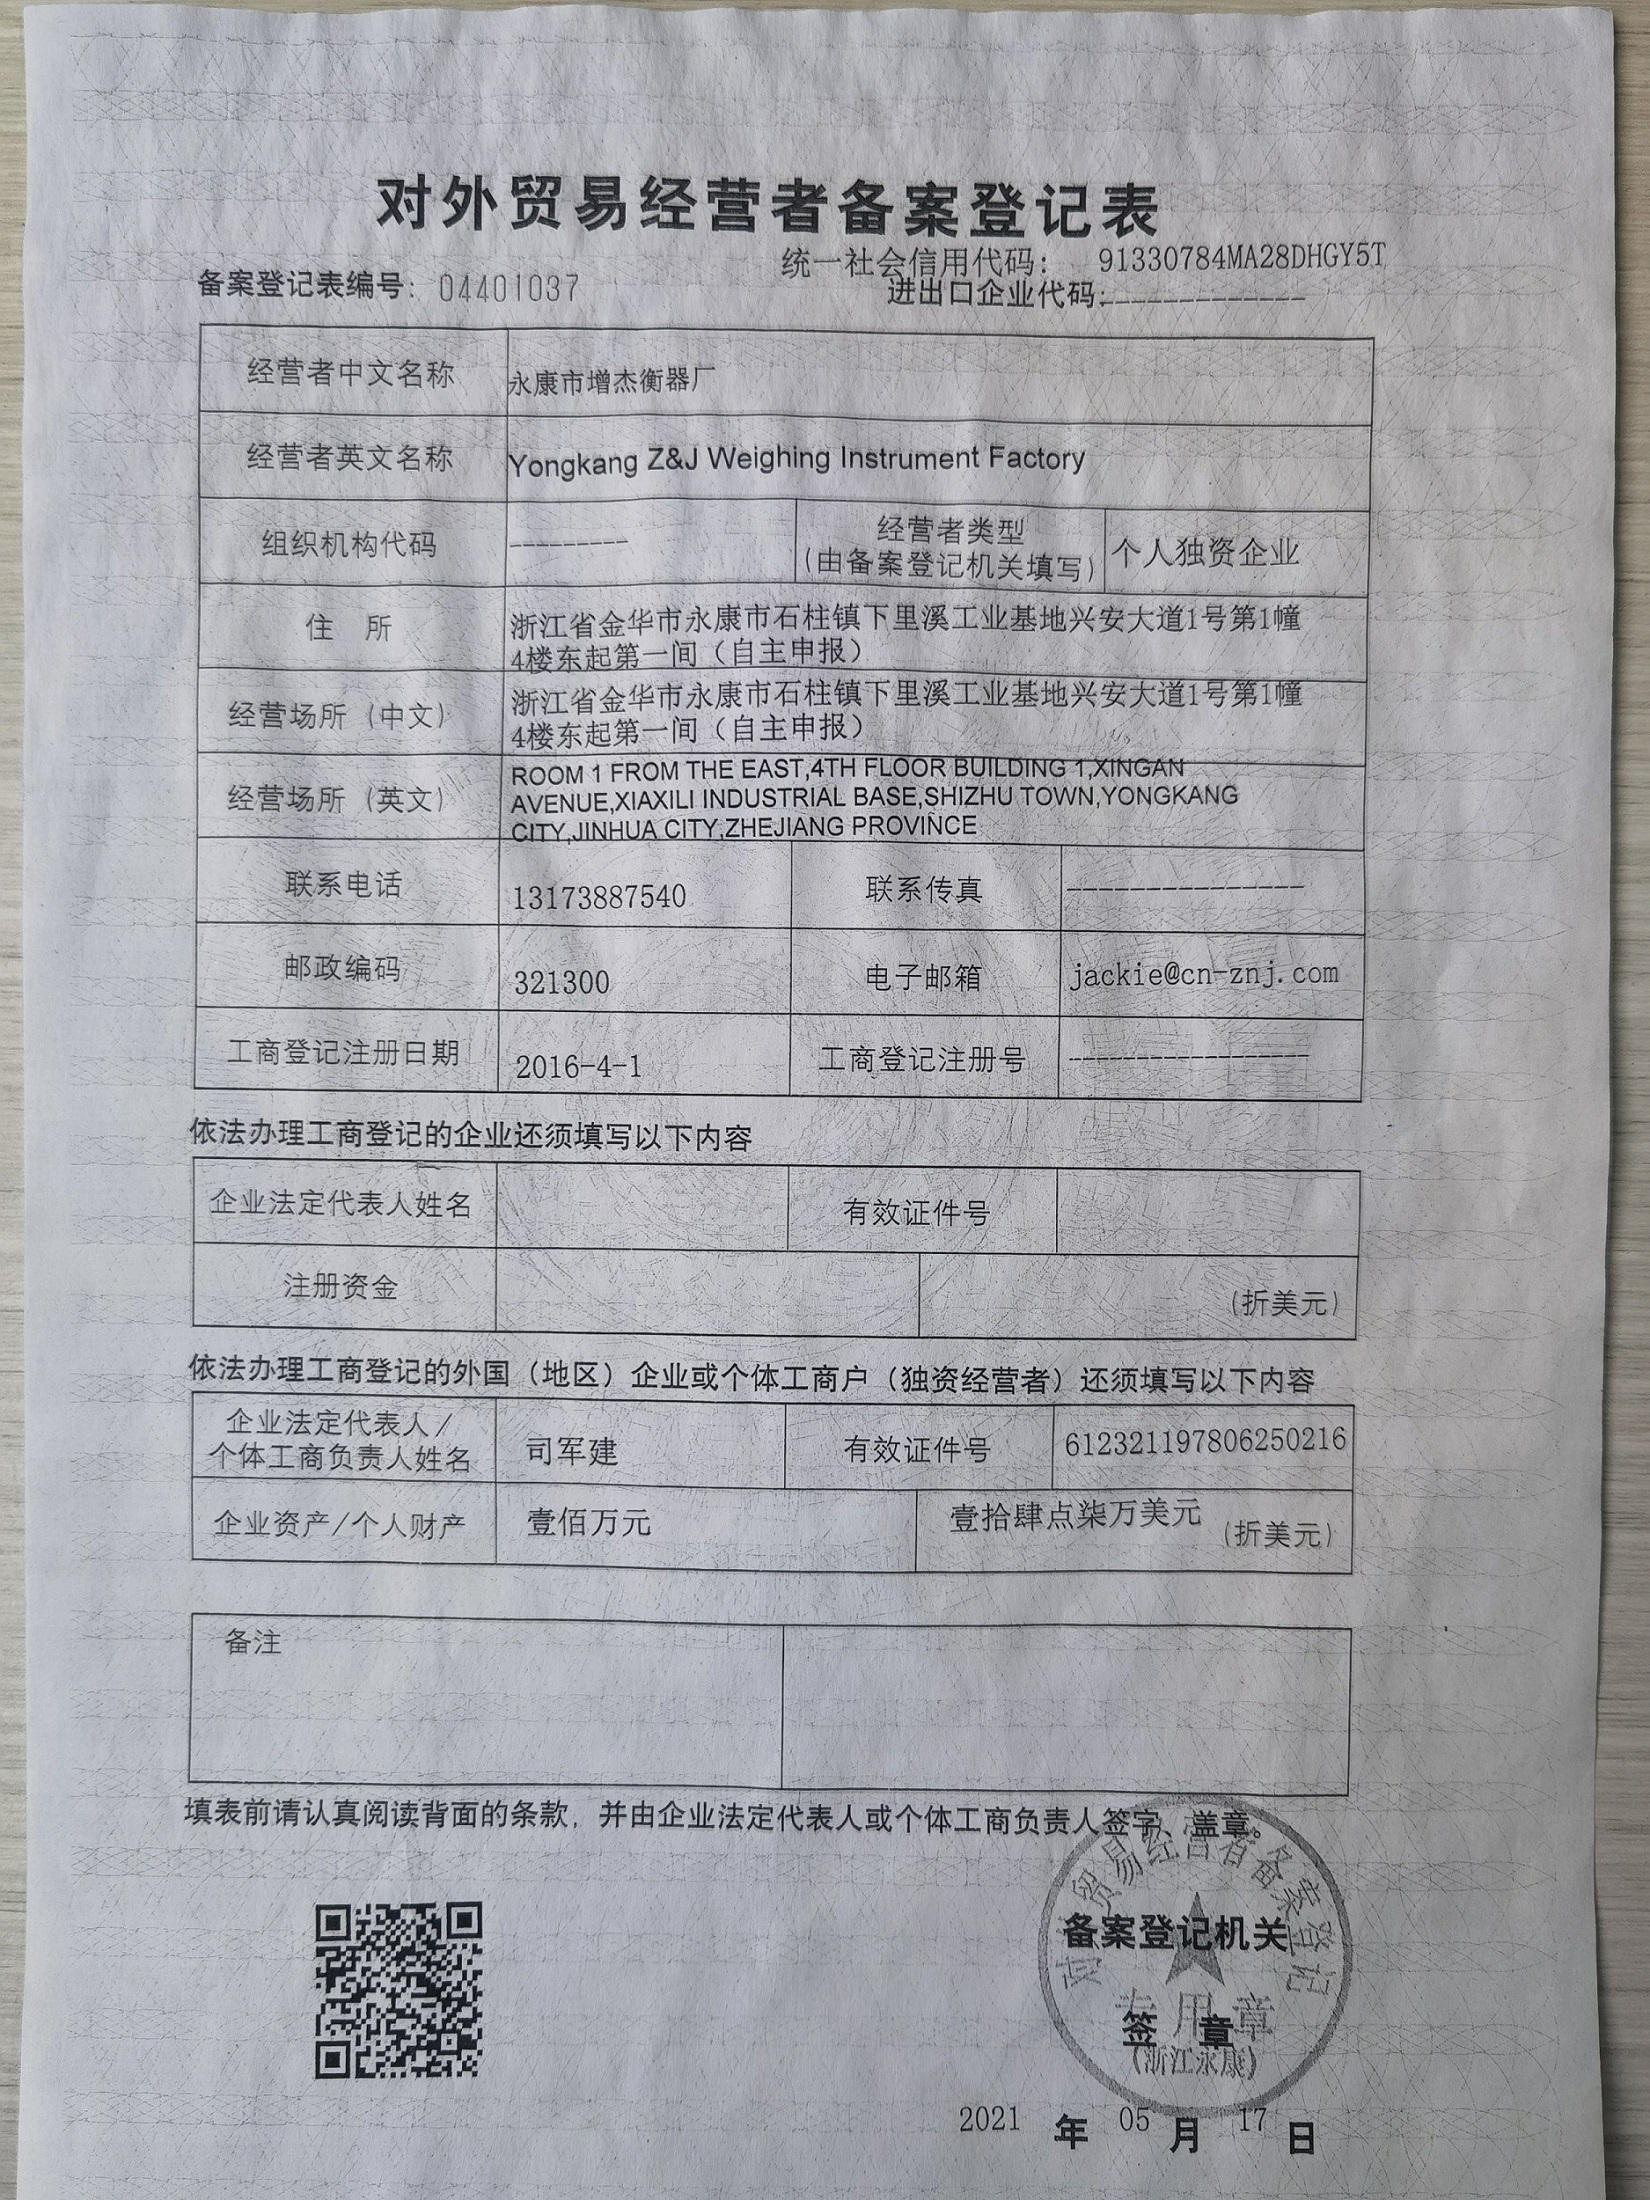 对外贸易经营者备案登记表
统一社会信用代码： 91330784MA28DHGY5T
备案登记表编号：04401037
进出口企业代码:-------------
经营者中文名称 永康市增杰衡器厂
经营者英文名称 Yongkang Z&J Weighing Instrument Factory
组织机构代码 --------- 经营者类型
(由备案登记机关填写) 个人独资企业
住 所 浙江省金华市永康市石柱镇下里溪工业基地兴安大道1号第1幢
4楼东起第一间（自主申报）
经营场所（中文） 浙江省金华市永康市石柱镇下里溪工业基地兴安大道1号第1幢
4楼东起第一间（自主申报）
经营场所（英文） ROOM 1 FROM THE EAST,4TH FLOOR BUILDING 1,XINGAN
AVENUE,XIAXILI INDUSTRIAL BASE,SHIZHU TOWN,YONGKANG
CITY,JINHUA CITY,ZHEJIANG PROVINCE
联系电话 13173887540 联系传真 ----------------
邮政编码 321300 电子邮箱 jackie@cn-znj.com
工商登记注册日期 2016-4-1 工商登记注册号 ----------------
依法办理工商登记的企业还须填写以下内容
企业法定代表人姓名 有效证件号
注册资金 (折美元)
依法办理工商登记的外国（地区）企业或个体工商户（独资经营者）还须填写以下内容
企业法定代表人/
个体工商负责人姓名 司军建 有效证件号 612321197806250216
企业资产/个人财产 壹佰万元 壹拾肆点柒万美元 (折美元)
备注
填表前请认真阅读背面的条款，并由企业法定代表人或个体工商负责人签字、盖章。
对外贸易经营者备案登记
备案登记机关
专用章
签 章
(浙江永康)
2021 年 05 月 17 日